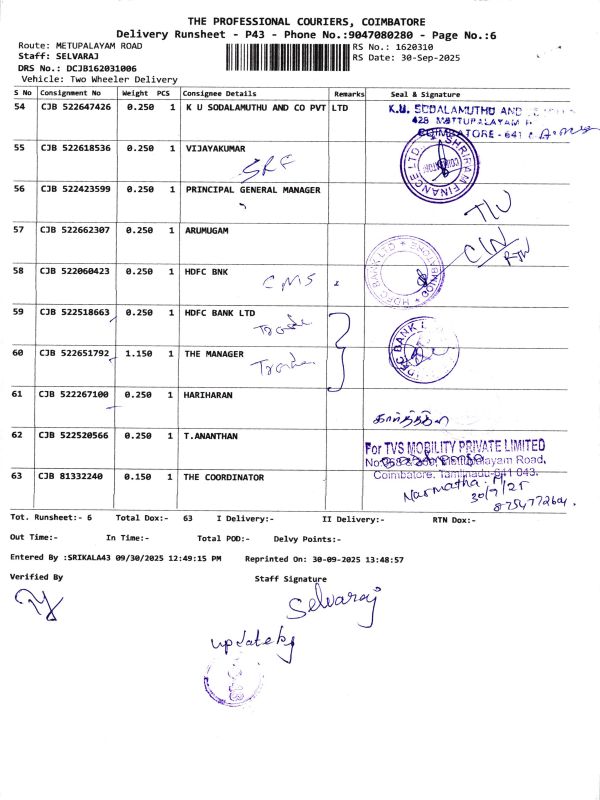 THE PROFESSIONAL COURIERS, COIMBATORE
Delivery Runsheet - P43 - Phone No.:9047080280 - Page No.:6
Route: METUPALAYAM ROAD RS No.: 1620310
Staff: SELVARAJ RS Date: 30-Sep-2025
DRS No.: DCJB162031006
Vehicle: Two Wheeler Delivery
S No Consignment No Weight PCS Consignee Details Remarks Seal & Signature
54 CJB 522647426 0.250 1 K U SODALAMUTHU AND CO PVT LTD K.U. SODALAMUTHU AND
428 METTUPALAYAM
COIMBATORE - 641
55 CJB 522618536 0.250 1 VIJAYAKUMAR SHRIRAM FINANCE LTD
SRF
56 CJB 522423599 0.250 1 PRINCIPAL GENERAL MANAGER
57 CJB 522662307 0.250 1 ARUMUGAM
58 CJB 522060423 0.250 1 HDFC BNK HDFC BANK LTD COIMBATORE
CMS
59 CJB 522518663 0.250 1 HDFC BANK LTD
Trade
60 CJB 522651792 1.150 1 THE MANAGER BANK
Trade
61 CJB 522267100 0.250 1 HARIHARAN
62 CJB 522520566 0.250 1 T.ANANTHAN For TVS MOBILITY PRIVATE LIMITED
Mettupalayam Road,
Coimbatore, Tamilnadu-641 043.
63 CJB 81332240 0.150 1 THE COORDINATOR
Narmatha
30/9/25
Tot. Runsheet:- 6 Total Dox:- 63 I Delivery:- II Delivery:- RTN Dox:-
Out Time:- In Time:- Total POD:- Delvy Points:-
Entered By :SRIKALA43 09/30/2025 12:49:15 PM Reprinted On: 30-09-2025 13:48:57
Verified By Staff Signature
Selvaraj